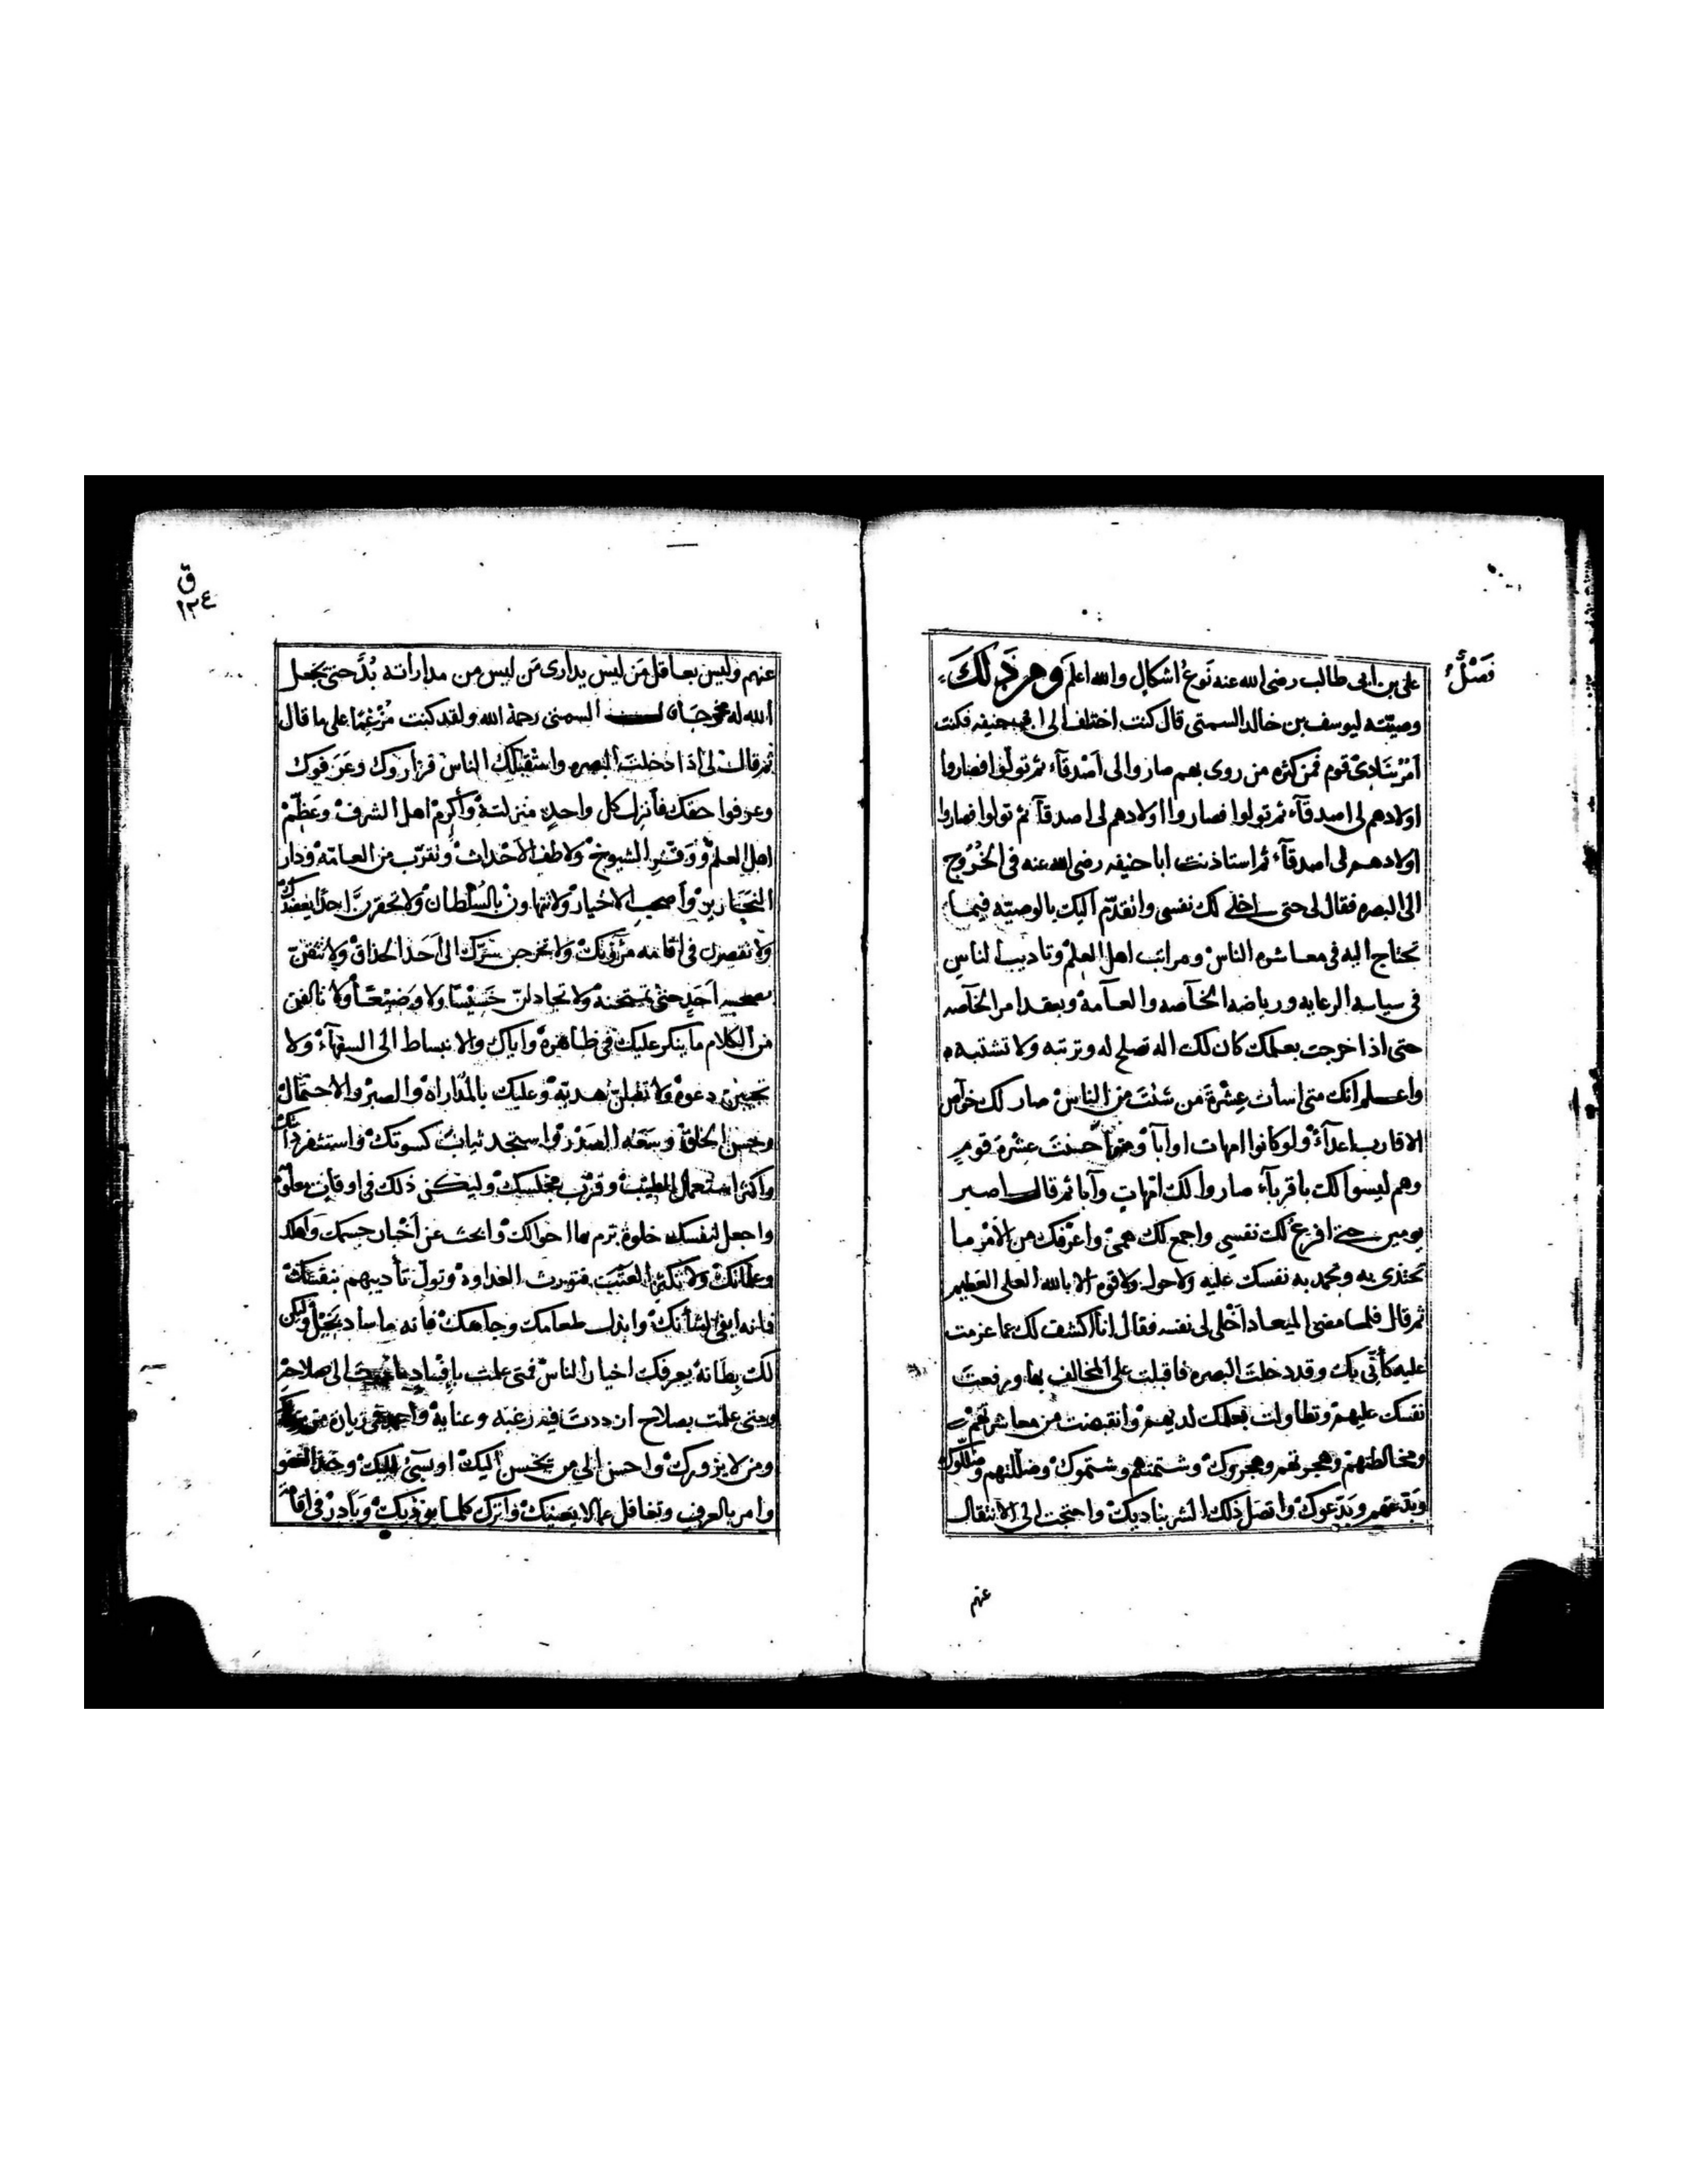 فصل
على بن ابى طالب رضى الله عنه نوع اشكال والله اعلم ومن ذلك
وصيته ليوسف بن خالد السمتى قال كنت اختلف الى ابى حنيفه فكنت
قوم فمن كثره من روى بهم صاروا الى اصدقآء ثم تولوا فصاروا
اولادهم لى اصدقآء ثم تولوا فصاروا اولادهم لى اصدقآ ثم تولوا فصاروا
اولادهم لى اصدقآء ثم استاذنت ابا حنيفه رضى الله عنه فى الخروج
الى البصره فقال لى حتى اخلى لك نفسى واتقدم اليك بالوصيته فيما
تحتاج اليه فى معاشره الناس ومراتب اهل العلم وتاديب الناس
فى سياسه الرعايه ورياضه الخآصه والعآمه وبعقد امر الخآصه
حتى اذا خرجت بعلمك كان لك اله تصلح له وترتبه ولا تشتبه
واعلم انك متى اسات عشرة من شئت من الناس صار لك خوآص
الاقارب اعدآء ولو كانوا امهات او ابآ ومتى احسنت عشرة قوم
وهم ليسوا لك باقربآء صاروا لك امهات وآبا ثم قال اصبر
يومين حتى افرغ لك نفسى واجمع لك همى واعرفك من الامر ما
تحتذى به وتحمد به نفسك عليه ولا حول ولا قوه الا بالله العلى العظيم
ثم قال فلما مضى الميعاد اخلى لى نفسه فقال انا اكشف لك عما عزمت
عليه كأنى بك وقد دخلت البصره فاقبلت على المخالف بها ورفعت
نفسك عليهم وتطاولت بعلمك لديهم وانقبضت من معاشرتهم
ومخالطتهم وهجوتهم وهجروك وشتمتهم وشتموك وضللتهم وضللوك
وبدعتهم وبدعوك واتصل ذلك الشر بناديك واحتجت الى الانتقال
عنهم
ق
١٣٤
عنهم وليس بعاقل من ليس يدارى من ليس من مداراته بد حتى يجعل
الله له مخرجا قال السمتى رحمة الله ولقد كنت مزغما على ما قال
ثم قال لى اذا دخلت البصره واستقبلك الناس فزاروك وعرفوك
وعرفوا حقك فأنزل كل واحد منزلته وأكرم اهل الشرف وعظم
اهل العلم ووقر الشيوخ ولاطف الاحداث وتقرب من العامه ودار
التجارين وأصحب الاخيار ولا تتهاون بالسلطان ولا تحقرن احدا يقصدك
ولا تقصرن فى اقامه مرؤتك ولا تخرجن سرك الى احد الحذاق ولا تثقن
بصحبه احد حتى تمتحنه ولا تجادلن خسيسا ولا وضيعا ولا تالفن
من الكلام ما ينكر عليك فى ظاهره واياك والانبساط الى السفهآء ولا
تجيبن دعوه ولا تقبلن هديه وعليك بالمداراه والصبر والاحتمال
وحسن الخلق وسعه الصدر واستجد ثياب كسوتك واستفره دابتك
واكثر استعمال الطيب وقرب مجلسك وليكن ذلك فى اوقات معلوم
واجعل لنفسك خلوة ترم بها احوالك وابحث عن أخبار حشمك واهلك
ولا تكثر العتب فتورث العداوه وتول تأديبهم بنفسك
فانه ابقى لشأنك وابذل طعامك وجاهك فانه ما ساد بخيل وليكن
لك بطانة يعرفك اخيار الناس فمتى علمت بإفساد الى صلاحه
ومتى علمت بصلاح ازددت فيه رغبه وعناية واجهد فى زيارة من
ومن لا يزورك واحسن الى من يحسن اليك او يسئ اليك وخذ العفو
وامر بالعرف وتغافل عما لا يعنيك واترك كلما يوذيك وبادر فى اقامة